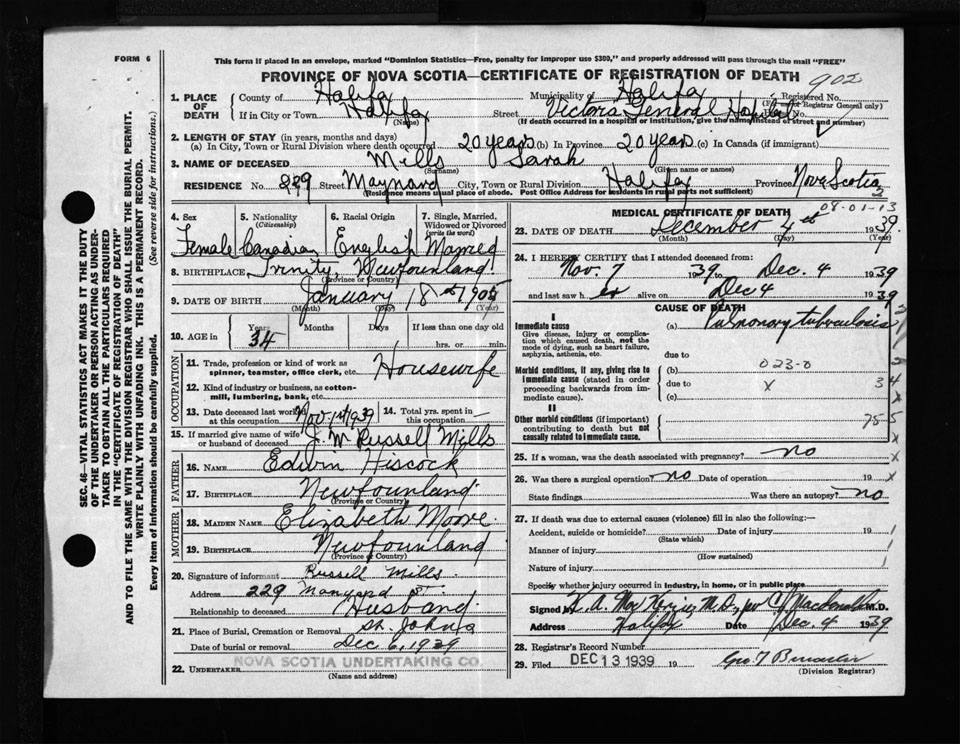 FORM 6
This form if placed in an envelope, marked "Dominion Statistics—Free, penalty for improper use $300," and properly addressed will pass through the mail "FREE"
PROVINCE OF NOVA SCOTIA—CERTIFICATE OF REGISTRATION OF DEATH
902
1. PLACE OF DEATH County of Halifax Municipality of Halifax Registered No.
(For use of Registrar General only)
If in City or Town Halifax Street Victoria General Hospital
(Name) (If death occurred in a hospital or institution, give the name instead of street and number)
2. LENGTH OF STAY (in years, months and days)
(a) In City, Town or Rural Division where death occurred 20 years (b) In Province 20 years (c) In Canada (if immigrant)
3. NAME OF DECEASED Mills Sarah
(Surname) (Given name or names)
RESIDENCE No. 229 Street Maynard City, Town or Rural Division Halifax Province Nova Scotia
(Residence means usual place of abode. Post Office Address for residents in rural parts not sufficient)
4. Sex Female
5. Nationality (Citizenship) Canadian
6. Racial Origin English
7. Single, Married, Widowed or Divorced (write the word) Married
8. BIRTHPLACE Trinity, Newfounland
(Province or Country)
9. DATE OF BIRTH January 18th 1905
(Month) (Day) (Year)
10. AGE in Years 34 Months Days If less than one day old
hrs. or min.
OCCUPATION
11. Trade, profession or kind of work as spinner, teamster, office clerk, etc. Housewife
12. Kind of industry or business, as cotton-mill, lumbering, bank, etc.
13. Date deceased last worked at this occupation Nov. 1st 1939 14. Total yrs. spent in this occupation
15. If married give name of wife or husband of deceased J. W. Russell Mills
FATHER
16. NAME Edwin Hiscock
17. BIRTHPLACE Newfounland
(Province or Country)
MOTHER
18. MAIDEN NAME Elizabeth Moore
19. BIRTHPLACE Newfounland
(Province or Country)
20. Signature of informant Russell Mills
Address 229 Maynard St
Relationship to deceased Husband
21. Place of Burial, Cremation or Removal St. John's
Date of burial or removal Dec 6, 1939
22. UNDERTAKER NOVA SCOTIA UNDERTAKING CO.
(Name and address)
MEDICAL CERTIFICATE OF DEATH 08-01-13
23. DATE OF DEATH December 4 1939
(Month) (Day) (Year)
24. I HEREBY CERTIFY that I attended deceased from:
Nov. 7 1939 to Dec. 4 1939
and last saw her alive on Dec 4 1939
CAUSE OF DEATH
I
Immediate cause (a) Pulmonary tuberculosis
Give disease, injury or complication which caused death, not the mode of dying, such as heart failure, asphyxia, asthenia, etc.
due to
Morbid conditions, if any, giving rise to immediate cause (stated in order proceeding backwards from immediate cause). (b) 023-0
due to X
(c)
II
Other morbid conditions (if important) contributing to death but not causally related to immediate cause.
25. If a woman, was the death associated with pregnancy? no
26. Was there a surgical operation? no Date of operation 19
State findings Was there an autopsy? no
27. If death was due to external causes (violence) fill in also the following:—
Accident, suicide or homicide? Date of injury 19
(State which)
Manner of injury
(How sustained)
Nature of injury
Specify whether injury occurred in industry, in home, or in public place
Signed by M.D.
Address Halifax Date Dec. 4 1939
28. Registrar's Record Number
29. Filed DEC 13 1939 19
(Division Registrar)
SEC. 46—VITAL STATISTICS ACT MAKES IT THE DUTY OF THE UNDERTAKER OR PERSON ACTING AS UNDERTAKER TO OBTAIN ALL THE PARTICULARS REQUIRED IN THE "CERTIFICATE OF REGISTRATION OF DEATH"
AND TO FILE THE SAME WITH THE DIVISION REGISTRAR WHO SHALL ISSUE THE BURIAL PERMIT.
WRITE PLAINLY WITH UNFADING INK. THIS IS A PERMANENT RECORD.
Every item of information should be carefully supplied. (See reverse side for instructions.)